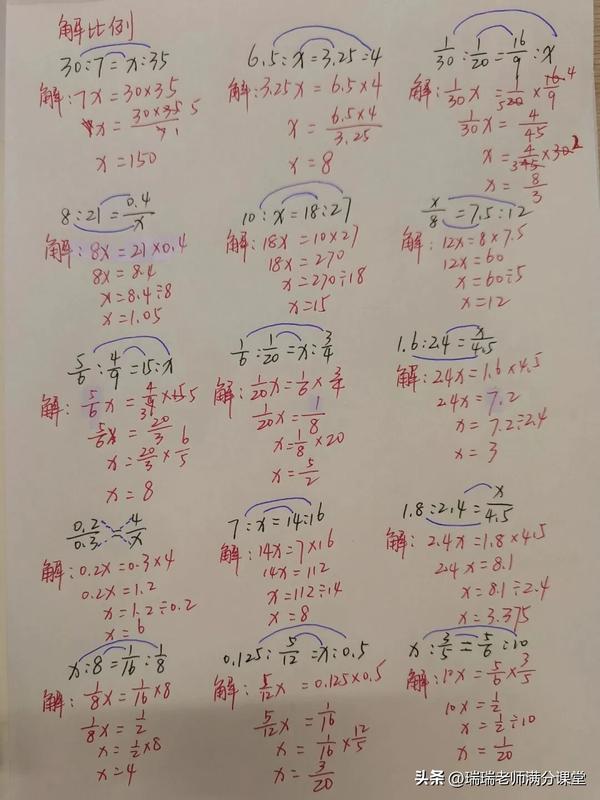 解比例
30:7=x:35
解:7x=30×35
x=30×35/7 5 1
x=150
6.5:x=3.25:4
解:3.25x=6.5×4
x=6.5×4/3.25
x=8
1/30:1/20=16/9:x
解:1/30x=1/20×16/9 5 4
1/30x=4/45
x=4/45×30 3 2
x=8/3
8:21=0.4/x
解:8x=21×0.4
8x=8.4
x=8.4÷8
x=1.05
10:x=18:27
解:18x=10×27
18x=270
x=270÷18
x=15
x/8=7.5:12
解:12x=8×7.5
12x=60
x=60÷5
x=12
5/6:4/9=15:x
解:5/6x=4/9×15 3 5
5/6x=20/3
x=20/3×6/5
x=8
1/6:1/20=x:3/4
解:1/20x=1/6×3/4
1/20x=1/8
x=1/8×20
x=5/2
1.6:2.4=x/4.5
解:2.4x=1.6×4.5
2.4x=7.2
x=7.2÷2.4
x=3
0.2/0.3=4/x
解:0.2x=0.3×4
0.2x=1.2
x=1.2÷0.2
x=6
7:x=14:16
解:14x=7×16
14x=112
x=112÷14
x=8
1.8:2.4=x/4.5
解:2.4x=1.8×4.5
2.4x=8.1
x=8.1÷2.4
x=3.375
x:8=1/16:1/8
解:1/8x=1/16×8
1/8x=1/2
x=1/2×8
x=4
0.125:5/12=x:0.5
解:5/12x=0.125×0.5
5/12x=1/16
x=1/16×12/5
x=3/20
x:3/5=5/6:10
解:10x=5/6×3/5
10x=1/2
x=1/2÷10
x=1/20
头条 @瑞瑞老师满分课堂